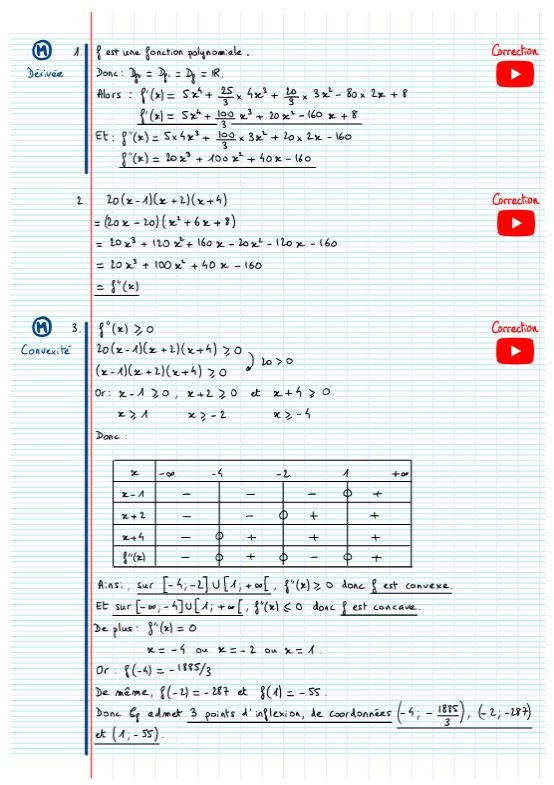 M
Dérivée
1. f est une fonction polynomiale.
Correction
Donc: Df'' = Df' = Df = ℝ.
Alors : f'(x) = 5x⁴ + 25/3 × 4x³ + 20/3 × 3x² - 80 × 2x + 8
f'(x) = 5x⁴ + 100/3 x³ + 20x² - 160x + 8
Et : f''(x) = 5×4x³ + 100/3 × 3x² + 20 × 2x - 160
f''(x) = 20x³ + 100x² + 40x - 160
2. 20(x-1)(x+2)(x+4)
Correction
= (20x - 20)(x² + 6x + 8)
= 20x³ + 120x² + 160x - 20x² - 120x - 160
= 20x³ + 100x² + 40x - 160
= f''(x)
M
Convexité
3. f''(x) ⩾ 0
Correction
20(x-1)(x+2)(x+4) ⩾ 0
20 > 0
(x-1)(x+2)(x+4) ⩾ 0
Or: x-1 ⩾ 0, x+2 ⩾ 0 et x+4 ⩾ 0
x ⩾ 1 x ⩾ -2 x ⩾ -4
Donc :
x -∞ -4 -2 1 +∞
x-1 - - - 0 +
x+2 - - 0 + +
x+4 - 0 + + +
f''(x) - 0 + 0 - 0 +
Ainsi, sur [-4;-2]∪[1;+∞[, f''(x) ⩾ 0 donc f est convexe.
Et sur [-∞;-4]∪[1;+∞[, f''(x) ⩽ 0 donc f est concave.
De plus: f''(x) = 0
x = -4 ou x = -2 ou x = 1.
Or : f(-4) = -1885/3
De même, f(-2) = -287 et f(1) = -55.
Donc Cf admet 3 points d'inflexion, de coordonnées (-4; -1885/3), (-2;-287)
et (1;-55).